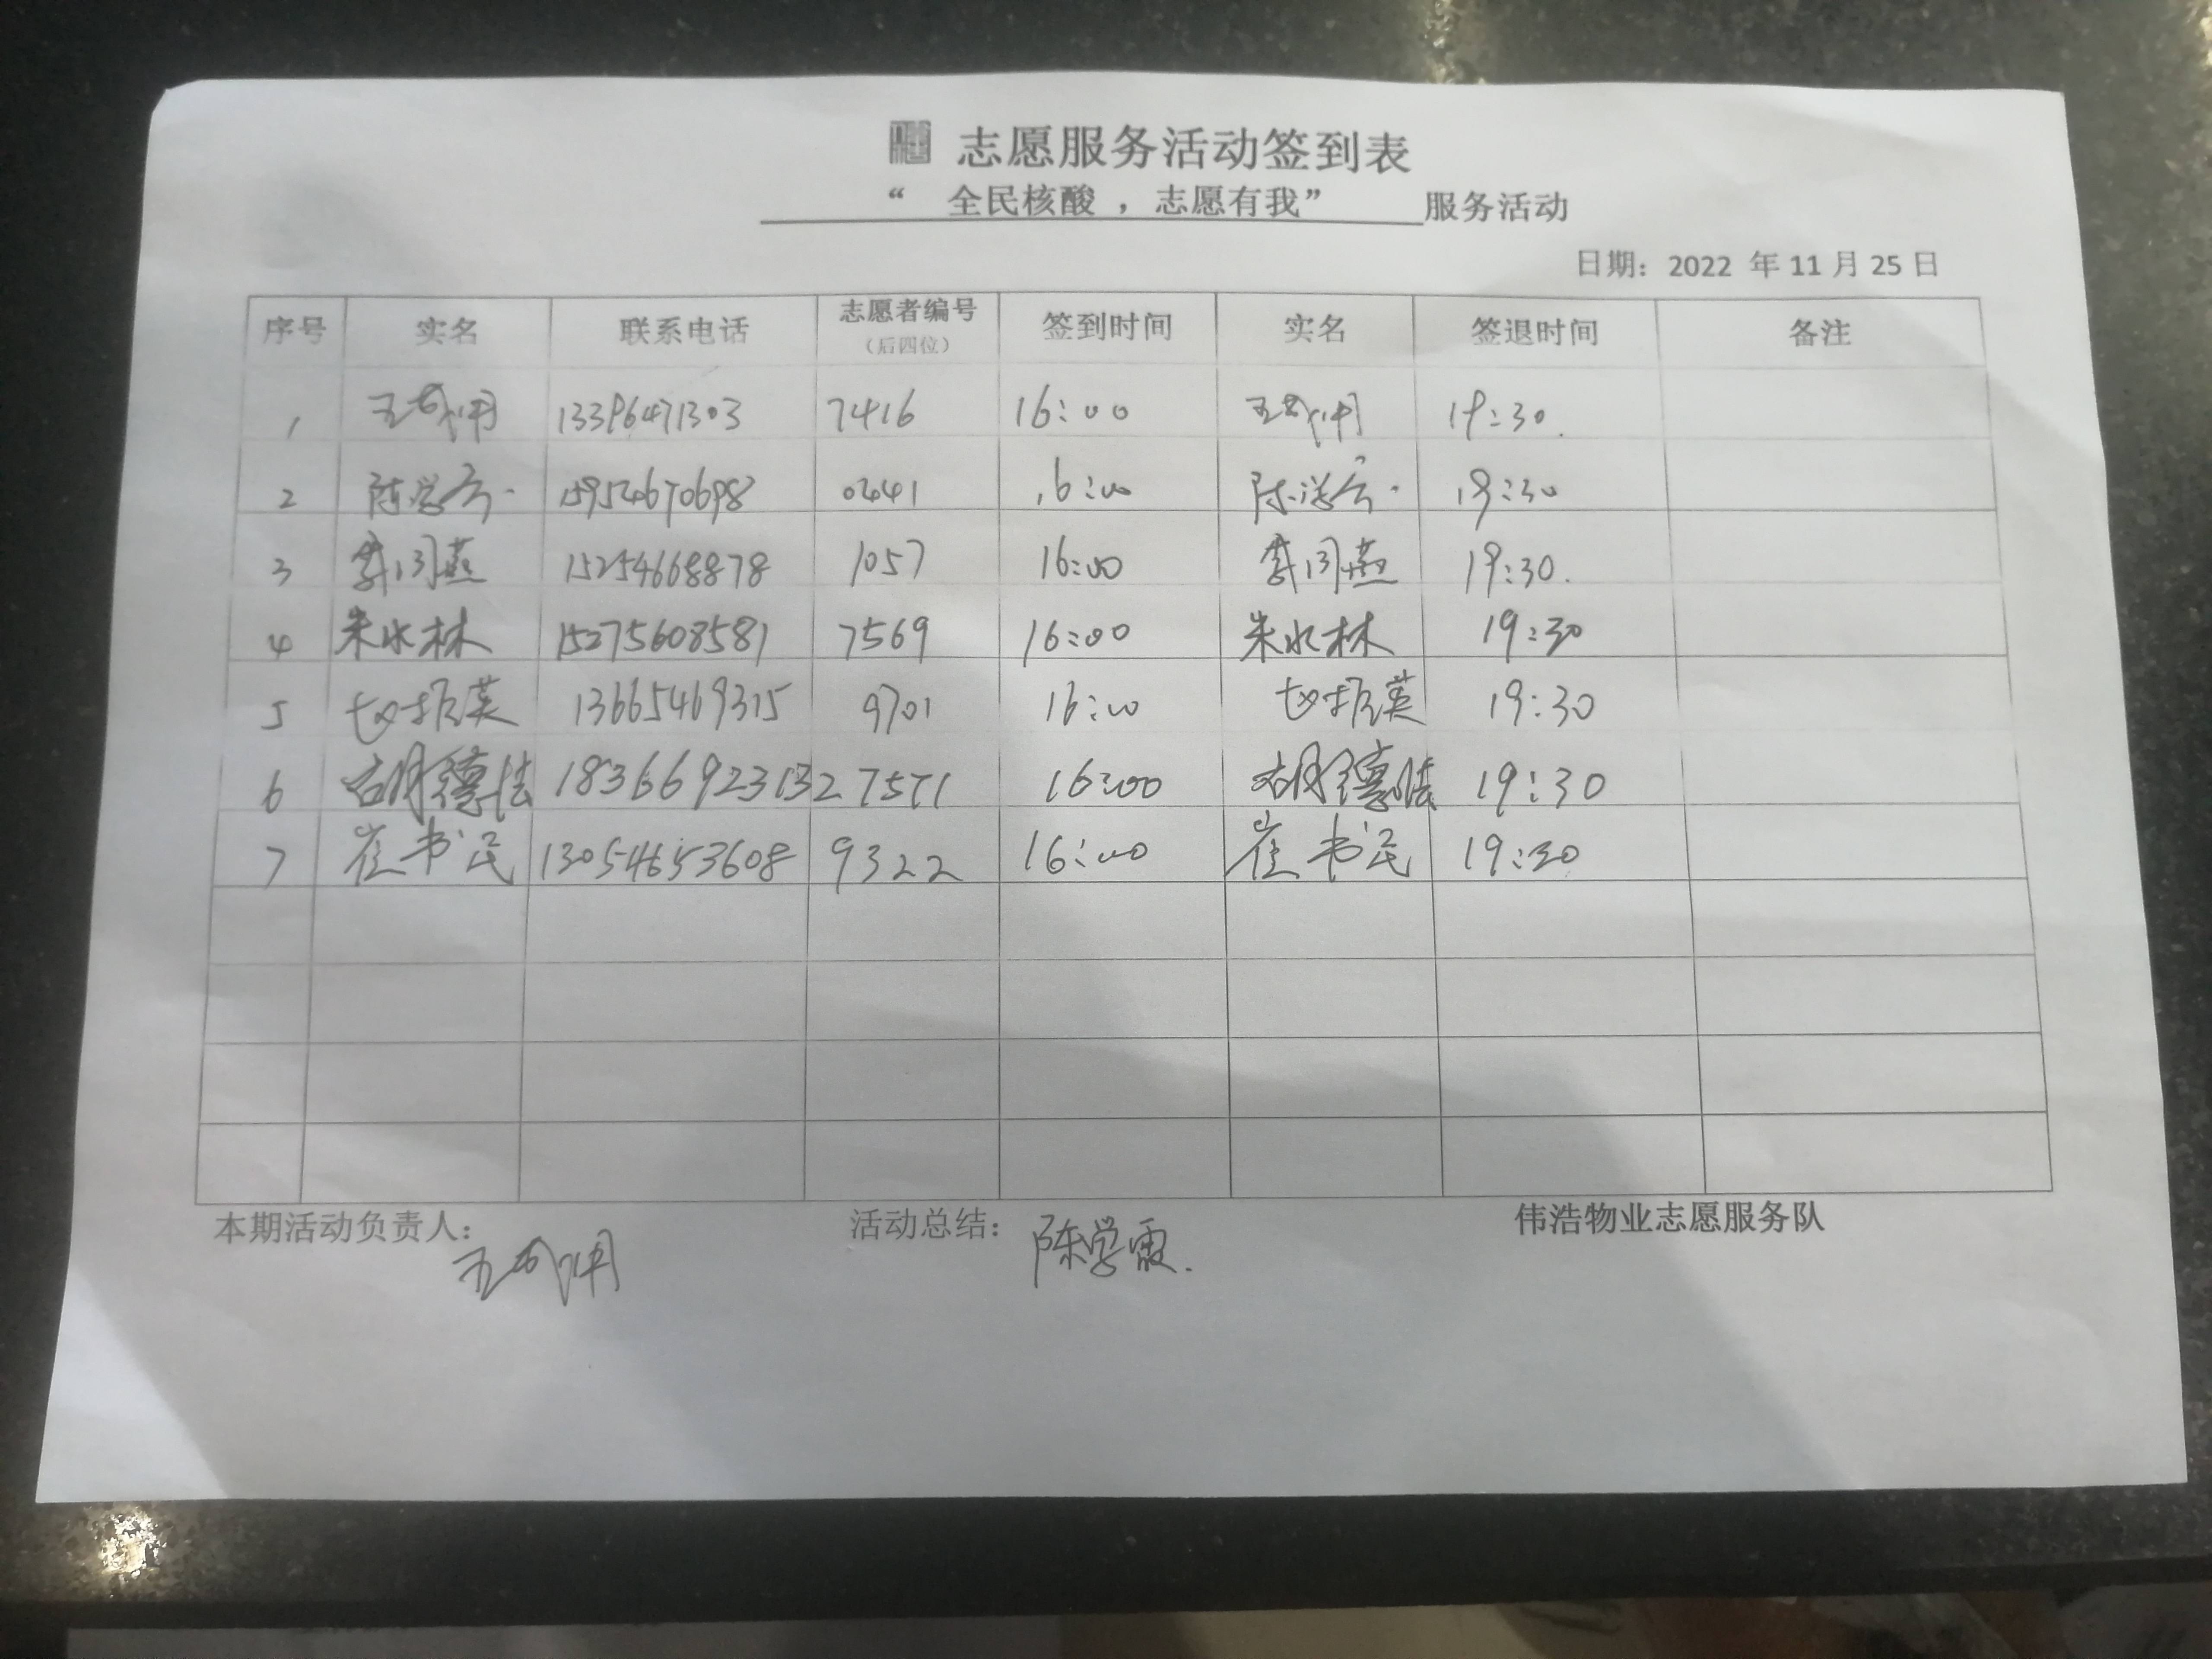 志愿服务活动签到表
“ 全民核酸 ，志愿有我” 服务活动
日期：2022 年 11 月 25 日
序号 实名 联系电话 志愿者编号（后四位） 签到时间 实名 签退时间 备注
1 13396471303 7416 16:00 19:30.
2 陈学 15954670698 0441 16:00 陈学 19:30
3 李闰燕 15254668878 1057 16:00 李闰燕 19:30.
4 朱水林 15275608581 7569 16:00 朱水林 19:30
5 赵振英 13665469315 9701 16:00 赵振英 19:30
6 胡德法 18366923132 7571 16:00 胡德法 19:30
7 崔书民 13054653608 9322 16:00 崔书民 19:30
本期活动负责人： 活动总结： 陈学霞. 伟浩物业志愿服务队